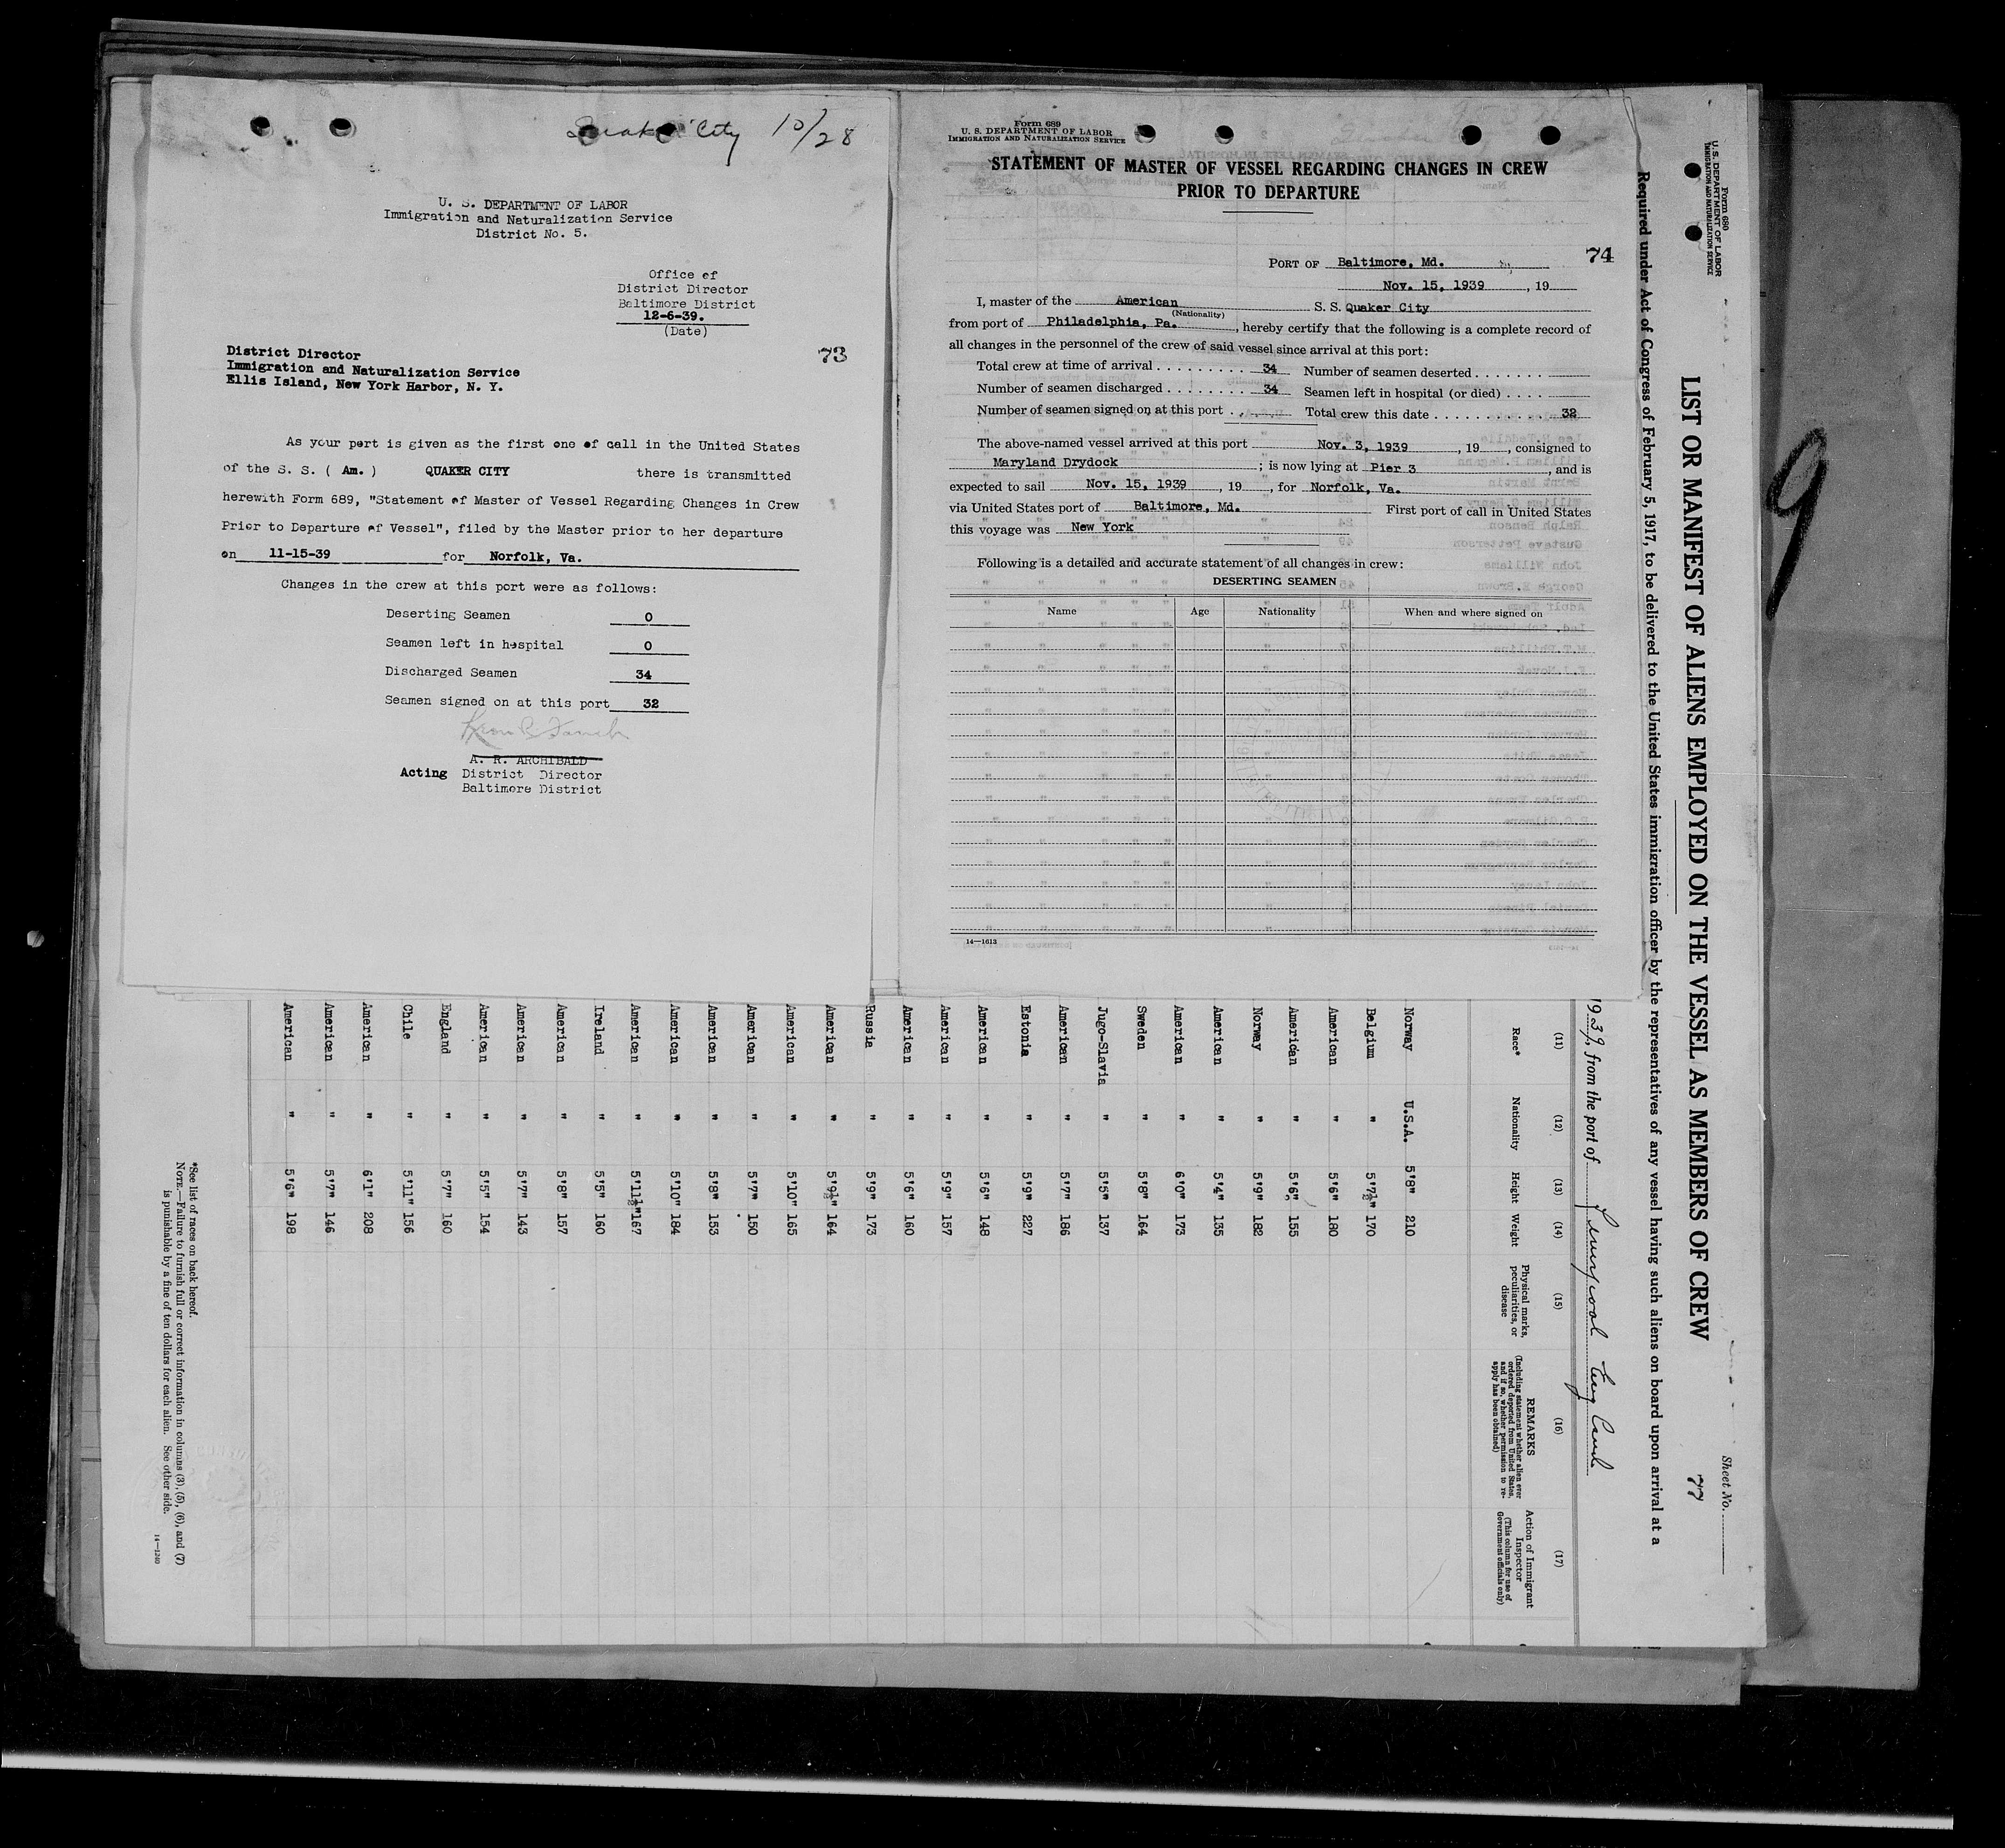 Quaker City 10/28
U. S. DEPARTMENT OF LABOR
Immigration and Naturalization Service
District No. 5.
Office of
District Director
Baltimore District
12-6-39.
(Date)
73
District Director
Immigration and Naturalization Service
Ellis Island, New York Harbor, N. Y.
As your port is given as the first one of call in the United States
of the S. S. ( Am. ) QUAKER CITY there is transmitted
herewith Form 689, "Statement of Master of Vessel Regarding Changes in Crew
Prior to Departure of Vessel", filed by the Master prior to her departure
on 11-15-39 for Norfolk, Va.
Changes in the crew at this port were as follows:
Deserting Seamen 0
Seamen left in hospital 0
Discharged Seamen 34
Seamen signed on at this port 32
A. R. ARCHIBALD
Acting District Director
Baltimore District
Form 689
U. S. DEPARTMENT OF LABOR
IMMIGRATION AND NATURALIZATION SERVICE
STATEMENT OF MASTER OF VESSEL REGARDING CHANGES IN CREW
PRIOR TO DEPARTURE
74
PORT OF Baltimore, Md.
Nov. 15, 1939, 19
I, master of the American S. S. Quaker City
(Nationality)
from port of Philadelphia, Pa., hereby certify that the following is a complete record of
all changes in the personnel of the crew of said vessel since arrival at this port:
Total crew at time of arrival . . . . . . . . . 34 Number of seamen deserted . . . . . . .
Number of seamen discharged . . . . . . . 34 Seamen left in hospital (or died) . . . .
Number of seamen signed on at this port . . Total crew this date . . . . . . . . . . . 32
The above-named vessel arrived at this port Nov. 3, 1939, 19, consigned to
Maryland Drydock; is now lying at Pier 3, and is
expected to sail Nov. 15, 1939, 19, for Norfolk, Va.
via United States port of Baltimore, Md. First port of call in United States
this voyage was New York
Following is a detailed and accurate statement of all changes in crew:
DESERTING SEAMEN
Name Age Nationality When and where signed on
14—1613
Form 680
U. S. DEPARTMENT OF LABOR
IMMIGRATION AND NATURALIZATION SERVICE
Sheet No.
LIST OR MANIFEST OF ALIENS EMPLOYED ON THE VESSEL AS MEMBERS OF CREW
77
Required under Act of Congress of February 5, 1917, to be delivered to the United States immigration officer by the representatives of any vessel having such aliens on board upon arrival at a
1939, from the port of Liverpool England
(11) (12) (13) (14) (15) (16) (17)
Race* Nationality Height Weight Physical marks, peculiarities, or disease REMARKS (Including statement whether alien ever ordered deported from United States, and if so, whether permission to reapply has been obtained) Action of Immigrant Inspector (This column for use of Government officials only)
Norway U.S.A. 5'8" 210
Belgium " 5'7½" 170
American " 5'6" 180
American " 5'6" 155
Norway " 5'9" 182
American " 5'4" 135
American " 6'0" 173
Sweden " 5'8" 164
Jugo-Slavia " 5'5" 137
American " 5'7" 186
Estonia " 5'9" 227
American " 5'6" 148
American " 5'9" 157
American " 5'6" 160
Russia " 5'9" 173
American " 5'9½" 164
American " 5'10" 165
American " 5'7" 150
American " 5'8" 153
American " 5'10" 184
American " 5'11½" 167
Ireland " 5'5" 160
American " 5'8" 157
American " 5'7" 143
American " 5'5" 154
England " 5'7" 160
Chile " 5'11" 156
American " 6'1" 208
American " 5'7" 146
American " 5'6" 198
*See list of races on back hereof.
NOTE.—Failure to furnish full or correct information in columns (3), (5), (6), and (7)
is punishable by a fine of ten dollars for each alien. See other side.
14—1240
9